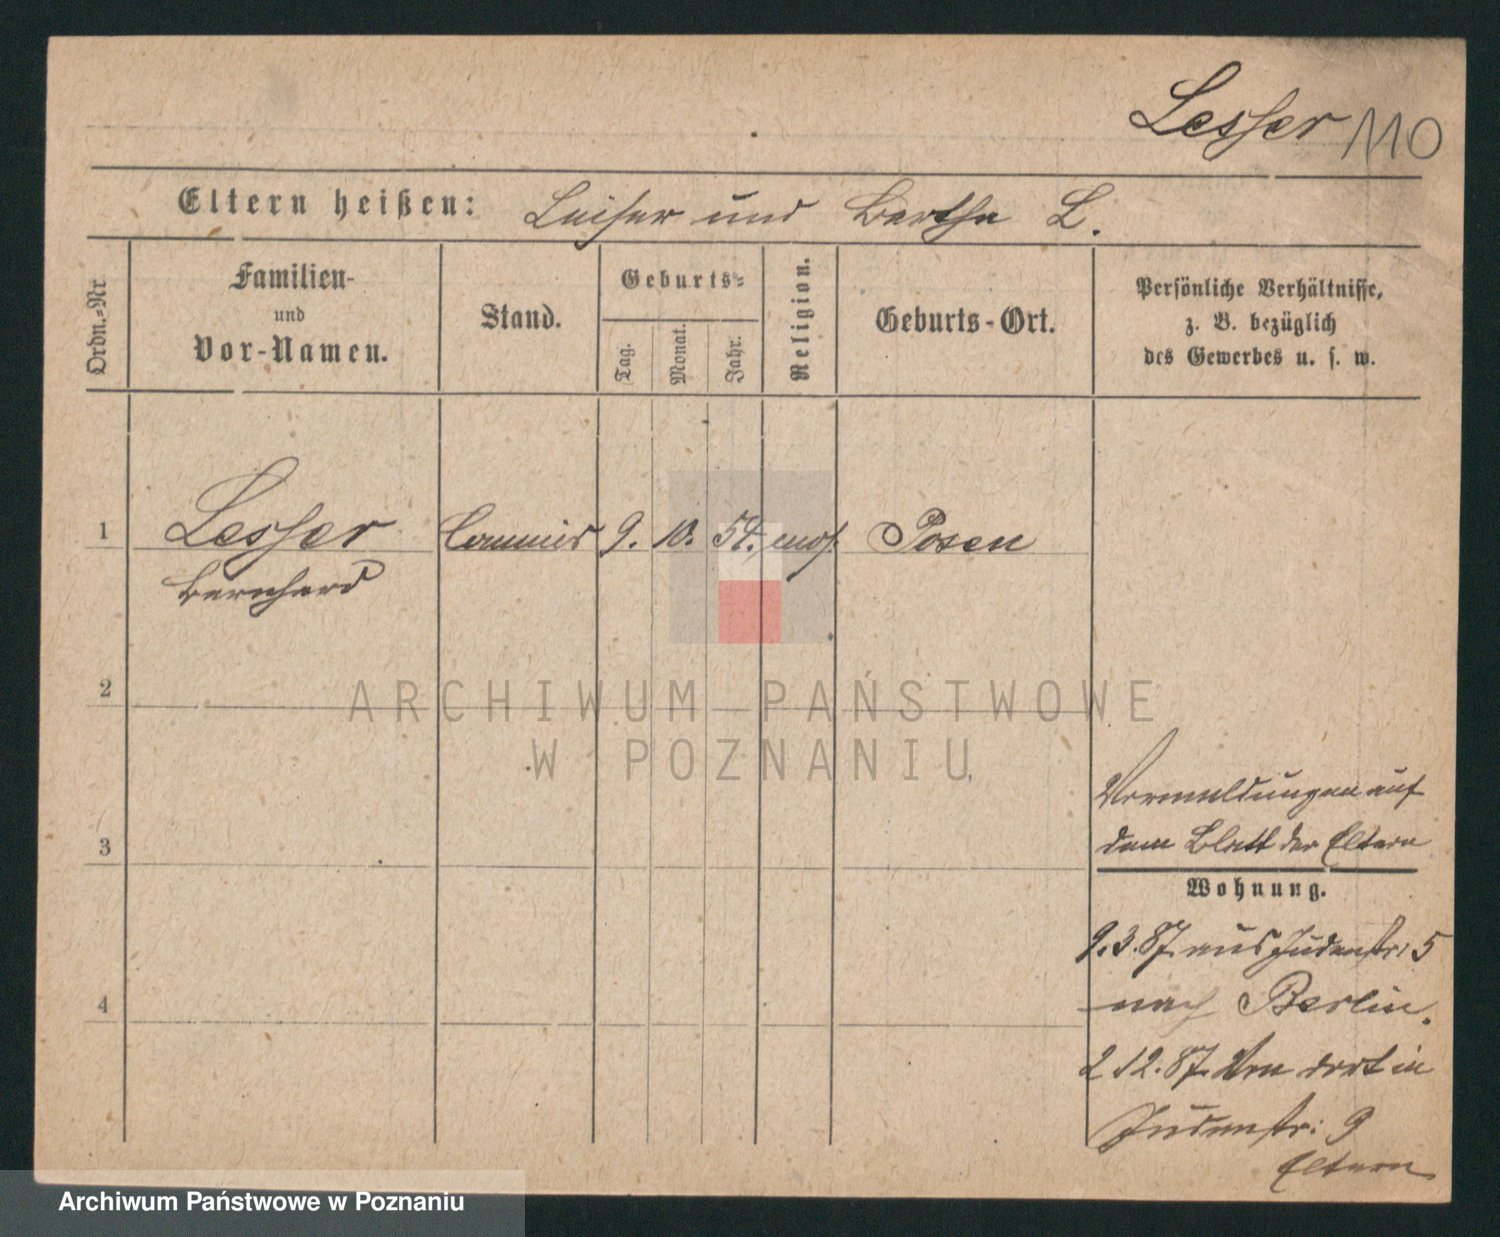 Lesser 110
Eltern heißen: Leiser und Berthe L.
Ordn.-Nr.
Familien-
und
Vor-Namen.
Stand.
Geburts-
Tag.
Monat.
Jahr.
Religion.
Geburts-Ort.
Persönliche Verhältnisse,
z. B. bezüglich
des Gewerbes u. s. w.
1 Lesser Commis 9. 10. 54. mos. Posen
Bernhard
2
ARCHIWUM PAŃSTWOWE
W POZNANIU
Vermeldungen auf
3 dem Blatt der Eltern
Wohnung.
9.3.87. aus Judenstr: 5
4 nach Berlin.
2 12.87. Von dort in
Judenstr: 9
Eltern
Archiwum Państwowe w Poznaniu